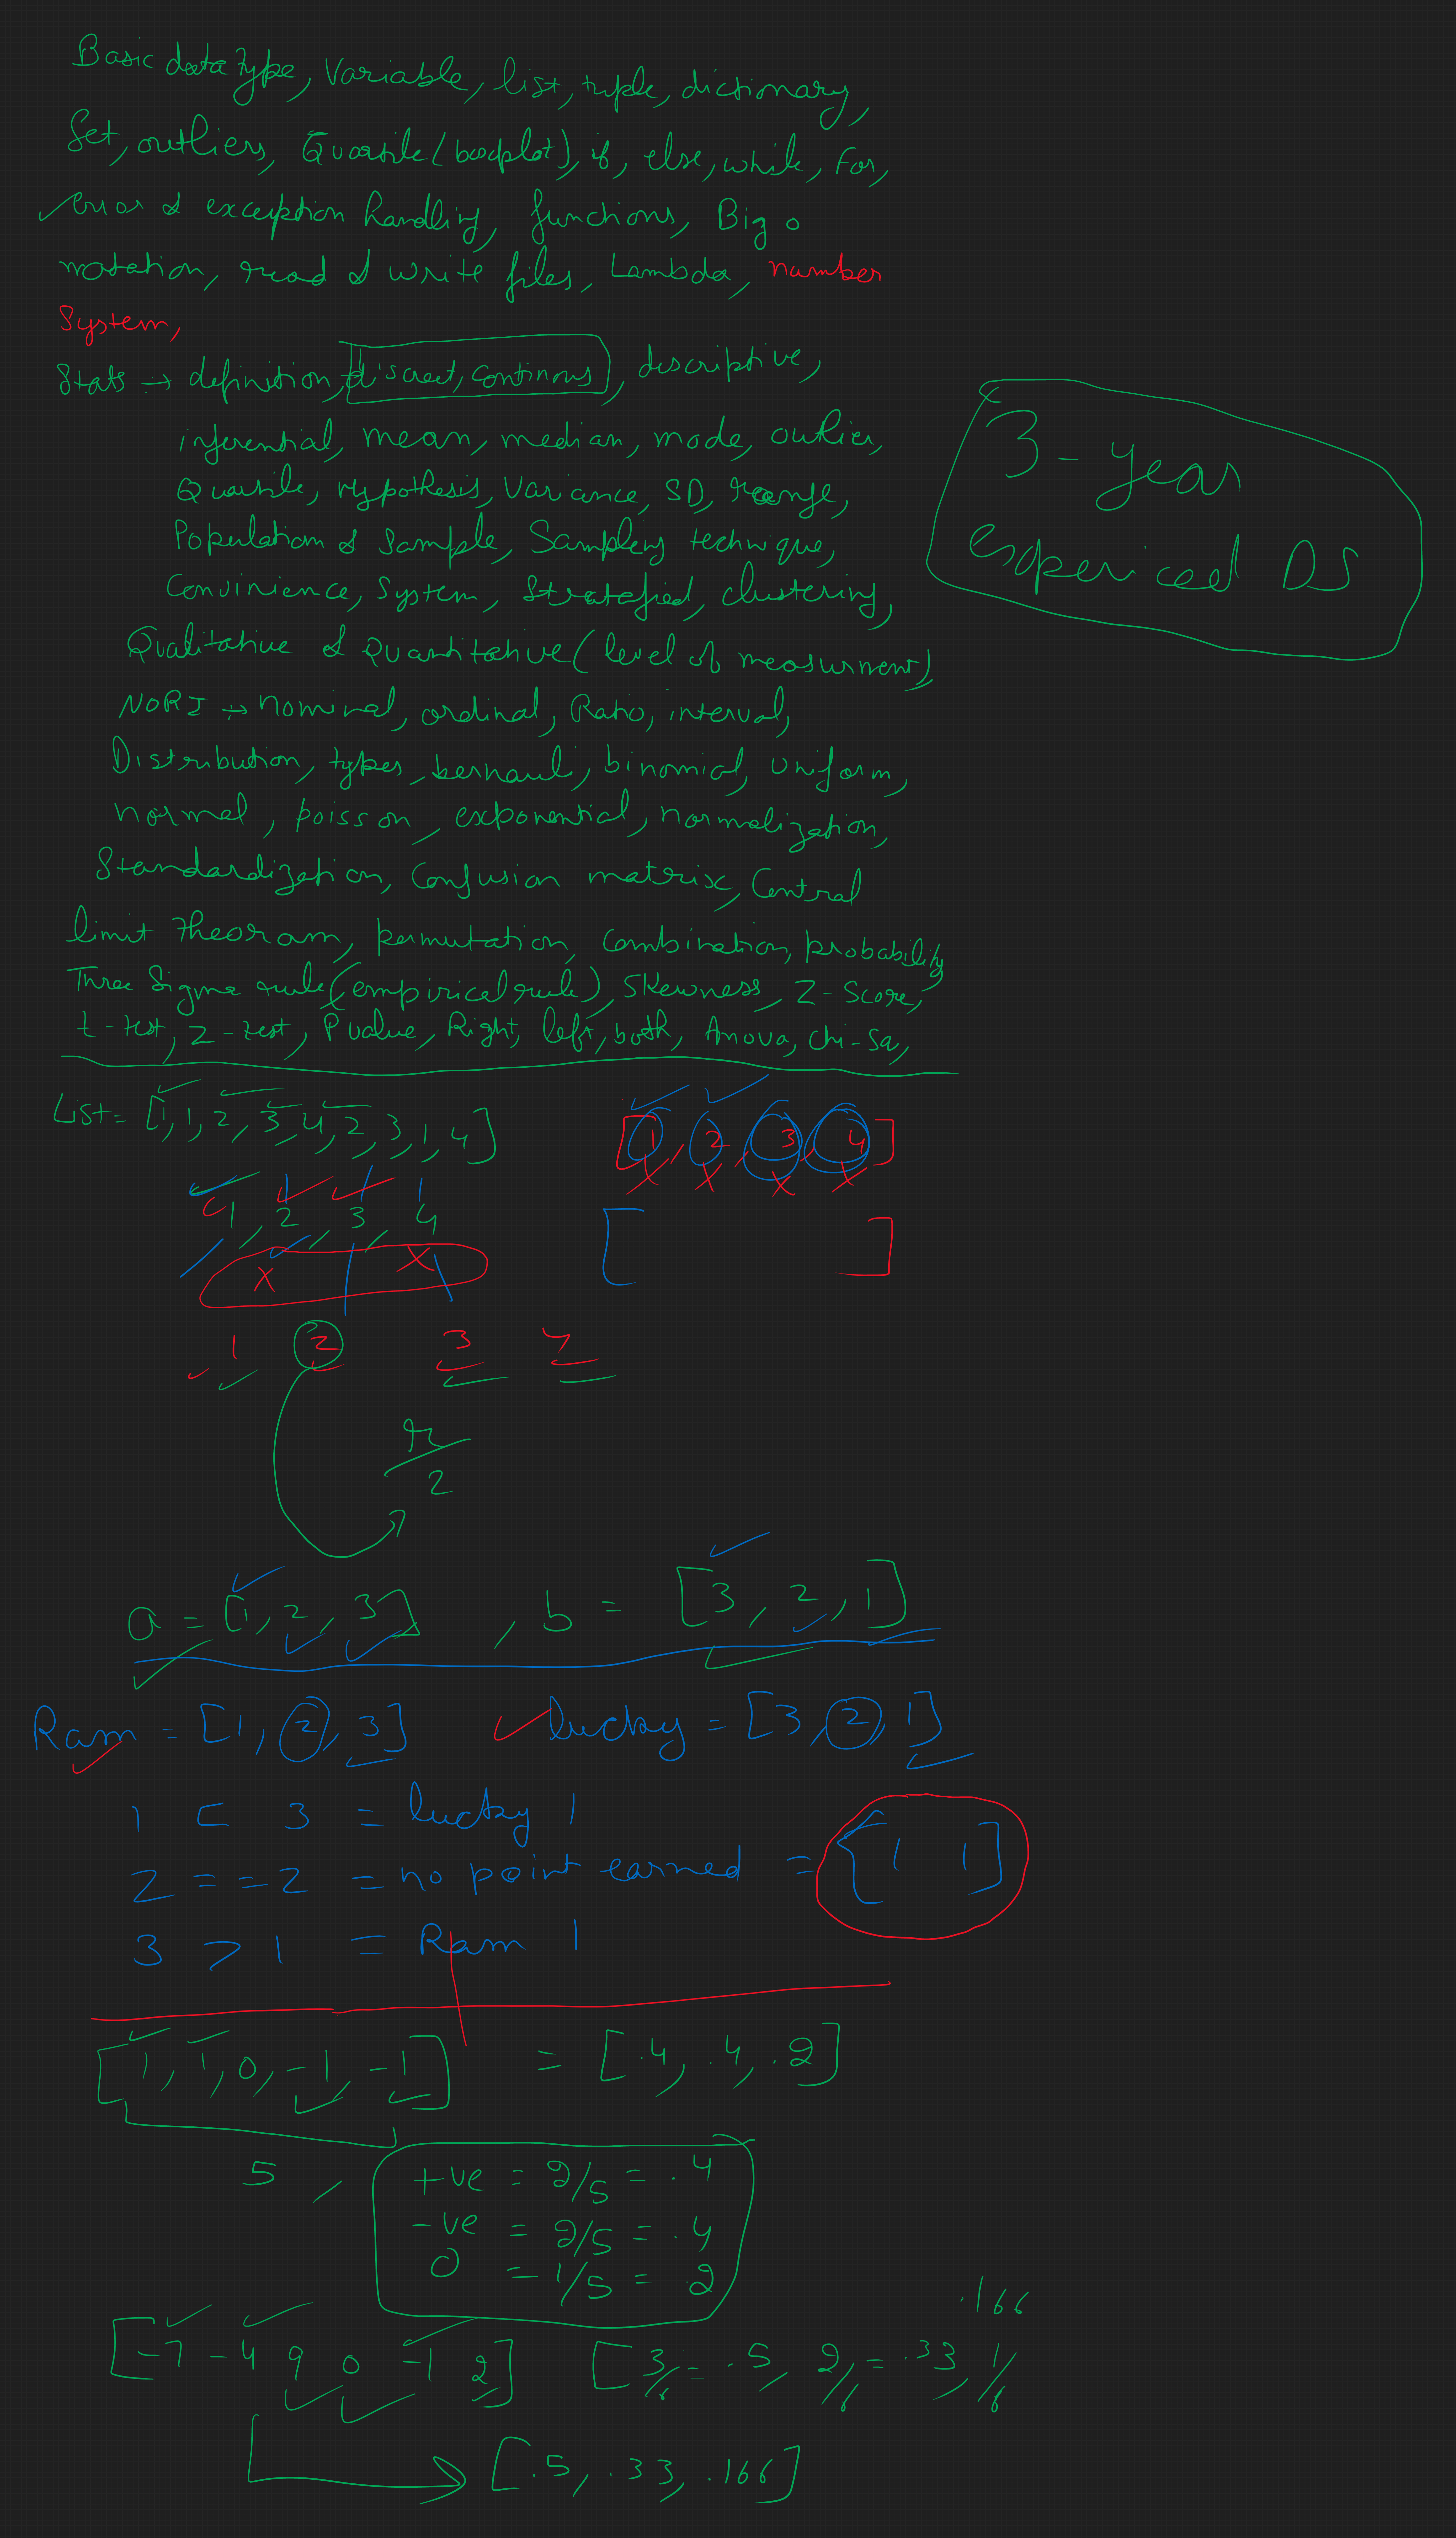 Basic data type, Variable, list, tuple, dictionary,
Set, outliers, Quartile (boxplot), if, else, while, for,
error & exception handling, functions, Big o
notation, read & write files, Lambda, number
System,
Stats → definition, discreet, continous, descriptive,
inferential, mean, median, mode, outlier,
Quartile, Hypothesis, Variance, SD, range,
Population & sample, Sampling technique,
Convinience, System, Stratefied, clustering,
Qualitative & Quantitative (level of measurment)
NORI → nominal, ordinal, Ratio, interval,
Distribution, types, bernauli, binomial, uniform,
normal, poisson, exponential, normalization,
Standardization, Confusion matrix, Central
limit theoram, permutation, Combination, probability
Three Sigma rule (empirical rule), Skewness, Z-Score,
t-test, z-test, P value, Right, left, both, Anova, chi-sq,
3-year
DS
List = [1, 1, 2, 3, 4, 2, 3, 1, 4]
[1, 2, 3, 4]
1, 2, 3, 4
X X
[ ]
1 2 3
2
a = [1, 2, 3] , b = [3, 2, 1]
Ram = [1, 2, 3] lucky = [3, 2, 1]
1 < 3 = lucky 1
2 == 2 = no point earned = [1 1]
3 > 1 = Ram 1
[1, 1, 0, -1, -1] = [.4, .4, .2]
5,
+ve = 2/5 = .4
-ve = 2/5 = .4
0 = 1/5 = .2
.166
[-7 -4 9 0 -1 2] [3/6 = .5, 2/6 = .33, 1/6
[.5, .33, .166]